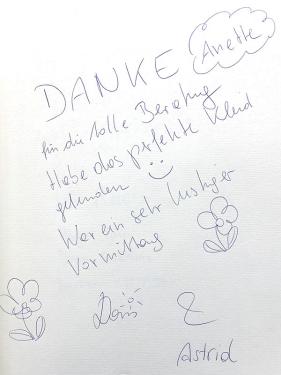 DANKE Anette
für die tolle Beratung
Habe das perfekte Kleid
gefunden
War ein sehr lustiger
Vormittag
Doris &
Astrid